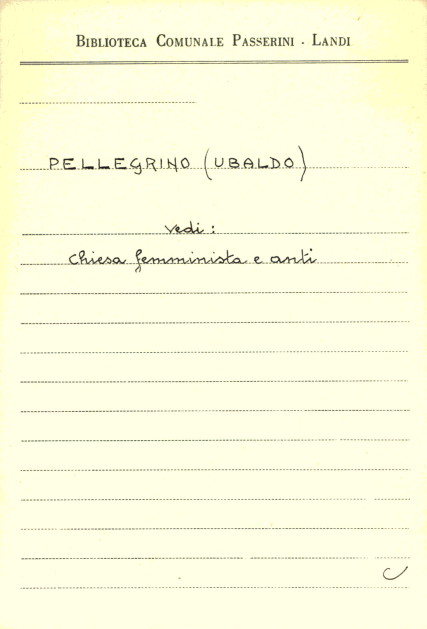 BIBLIOTECA COMUNALE PASSERINI - LANDI
PELLEGRINO (UBALDO)
vedi:
Chiesa femminista e anti